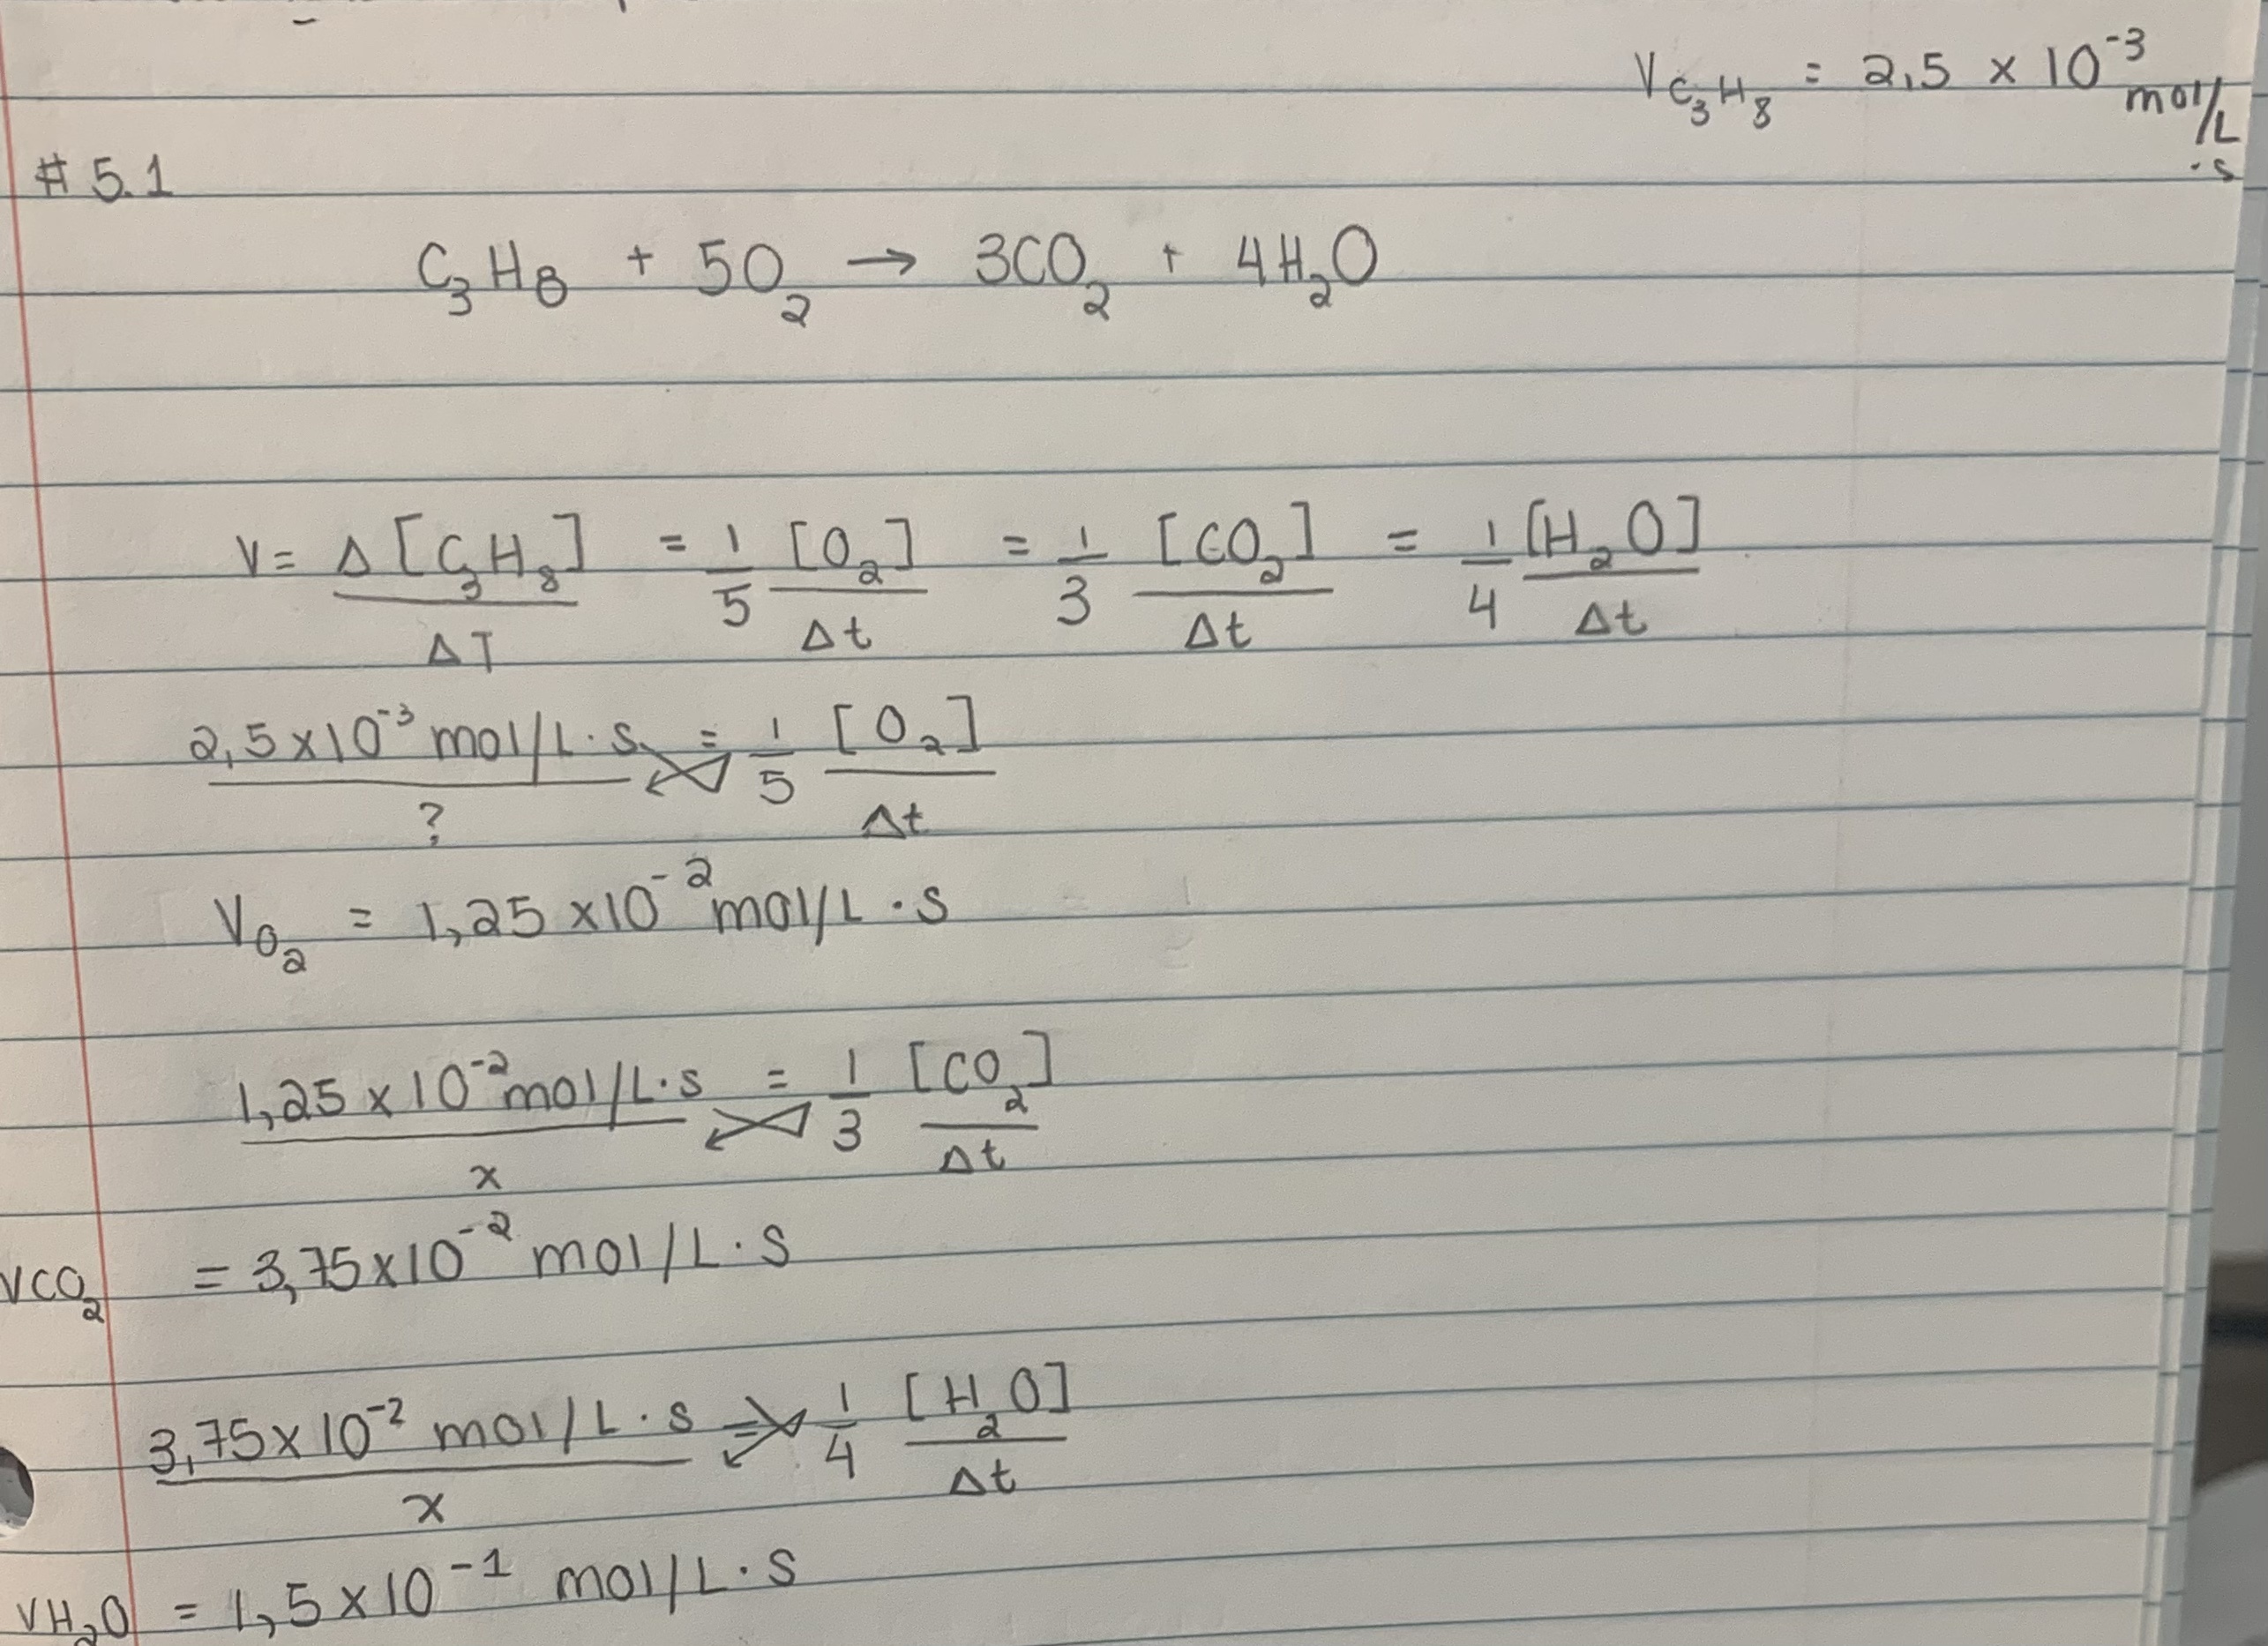 V C₃H₈ = 2,5 × 10⁻³ mol/L·s
# 5.1
C₃H₈ + 5O₂ → 3CO₂ + 4H₂O
V = Δ[C₃H₈]/ΔT = 1/5 [O₂]/Δt = 1/3 [CO₂]/Δt = 1/4 [H₂O]/Δt
2,5×10⁻³ mol/L·s / ? = 1/5 [O₂]/Δt
V O₂ = 1,25 ×10⁻² mol/L·s
1,25 × 10⁻² mol/L·s / x = 1/3 [CO₂]/Δt
VCO₂ = 3,75×10⁻² mol/L·s
3,75×10⁻² mol/L·s / x = 1/4 [H₂O]/Δt
VH₂O = 1,5×10⁻¹ mol/L·s